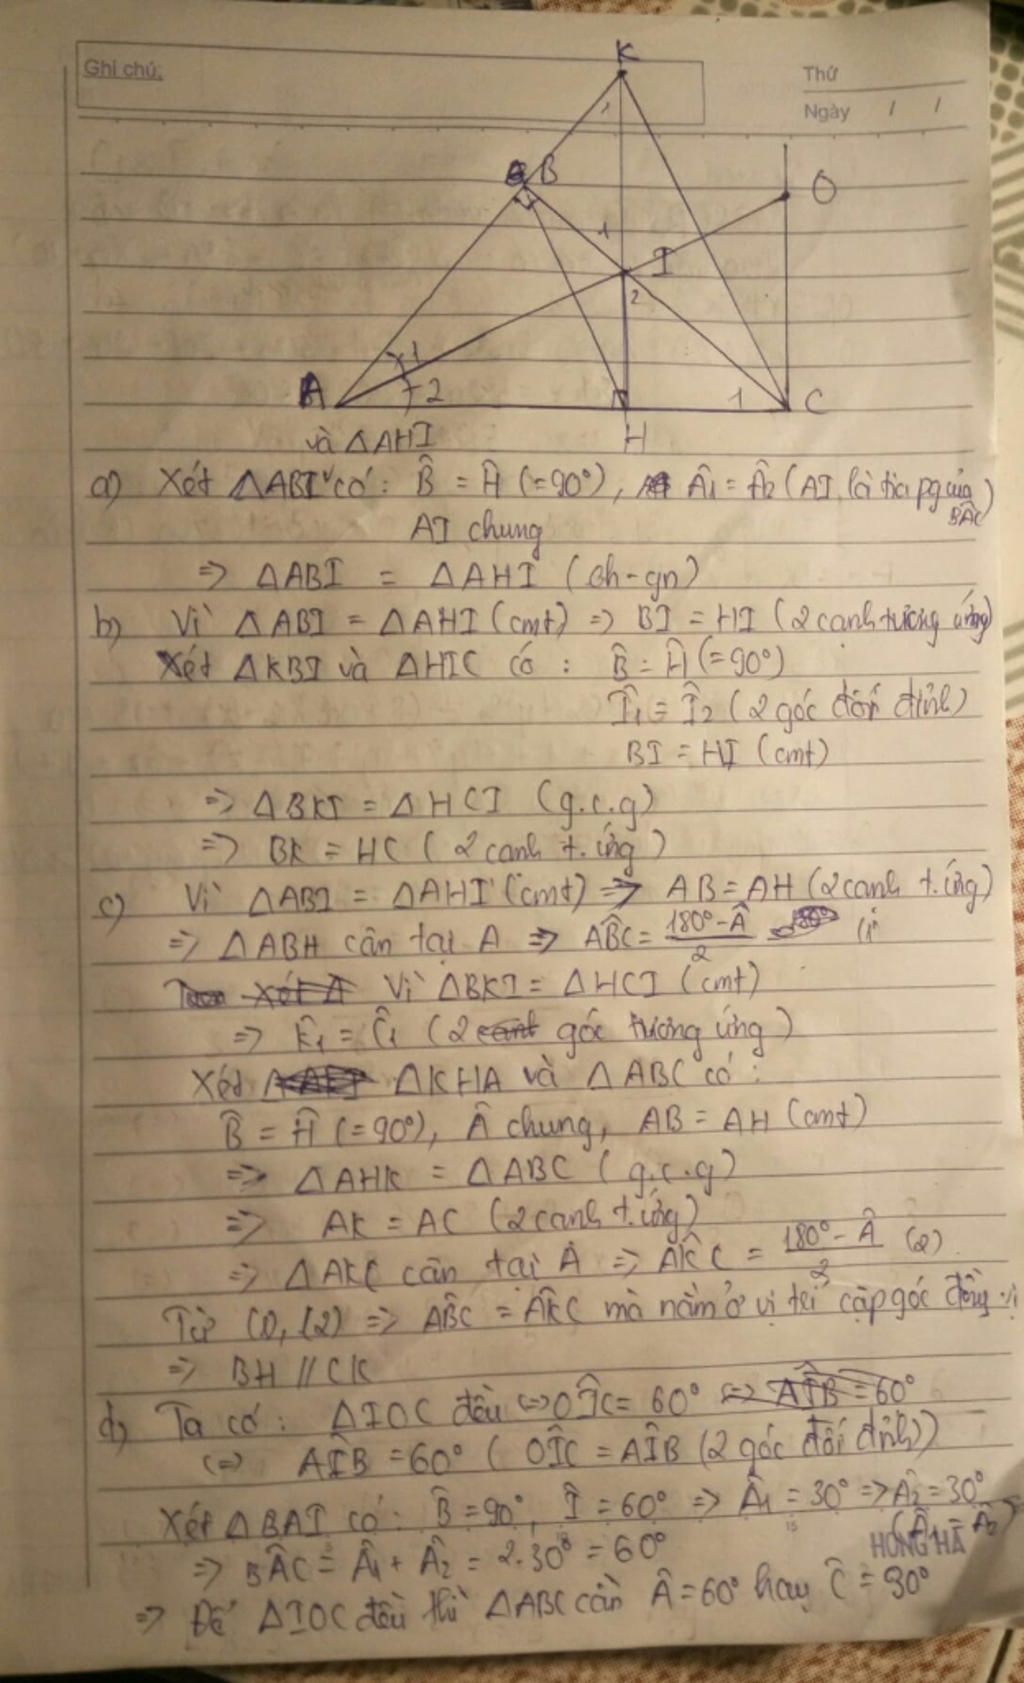 Ghi chú:
Thứ
Ngày / /
K
1
B
O
1
I
2
1
A
2
1
C
H
và △AHI
a) Xét △ABI có: B̂ = Ĥ (=90°), Â1 = Â2 (AI là tia pg của BÂC)
AI chung
=> △ABI = △AHI (ch-gn)
b) Vì △ABI = △AHI (cmt) => BI = HI (2 cạnh tương ứng)
Xét △KBI và △HIC có : B̂ = Ĥ (=90°)
Î1 = Î2 (2 góc đối đỉnh)
BI = HI (cmt)
=> △BKI = △HCI (g.c.g)
=> BK = HC (2 cạnh t.ứng)
c) Vì △ABI = △AHI (cmt) => AB = AH (2 cạnh t.ứng)
=> △ABH cân tại A => AB̂C = (180° - Â)/2
Vì △BKI = △HCI (cmt)
=> K̂1 = Ĉ1 (2 góc tương ứng)
Xét △KHA và △ABC có :
B̂ = Ĥ (=90°), Â chung, AB = AH (cmt)
=> △AHK = △ABC (g.c.g)
=> AK = AC (2 cạnh t.ứng)
=> △AKC cân tại A => AK̂C = (180° - Â)/2 (2)
Từ (1), (2) => AB̂C = AK̂C mà nằm ở vị trí cặp góc đồng vị
=> BH // CK
d) Ta có : △IOC đều <=> OÎC = 60° <=> AÎB = 60°
<=> AÎB = 60° ( OÎC = AÎB (2 góc đối đỉnh))
Xét △BAI có: B̂ = 90°, Î = 60° => Â1 = 30° => Â2 = 30°
(Â1 = Â2)
HONG HA
=> BÂC = Â1 + Â2 = 2.30° = 60°
=> Để △IOC đều thì △ABC cần Â = 60° hay Ĉ = 30°